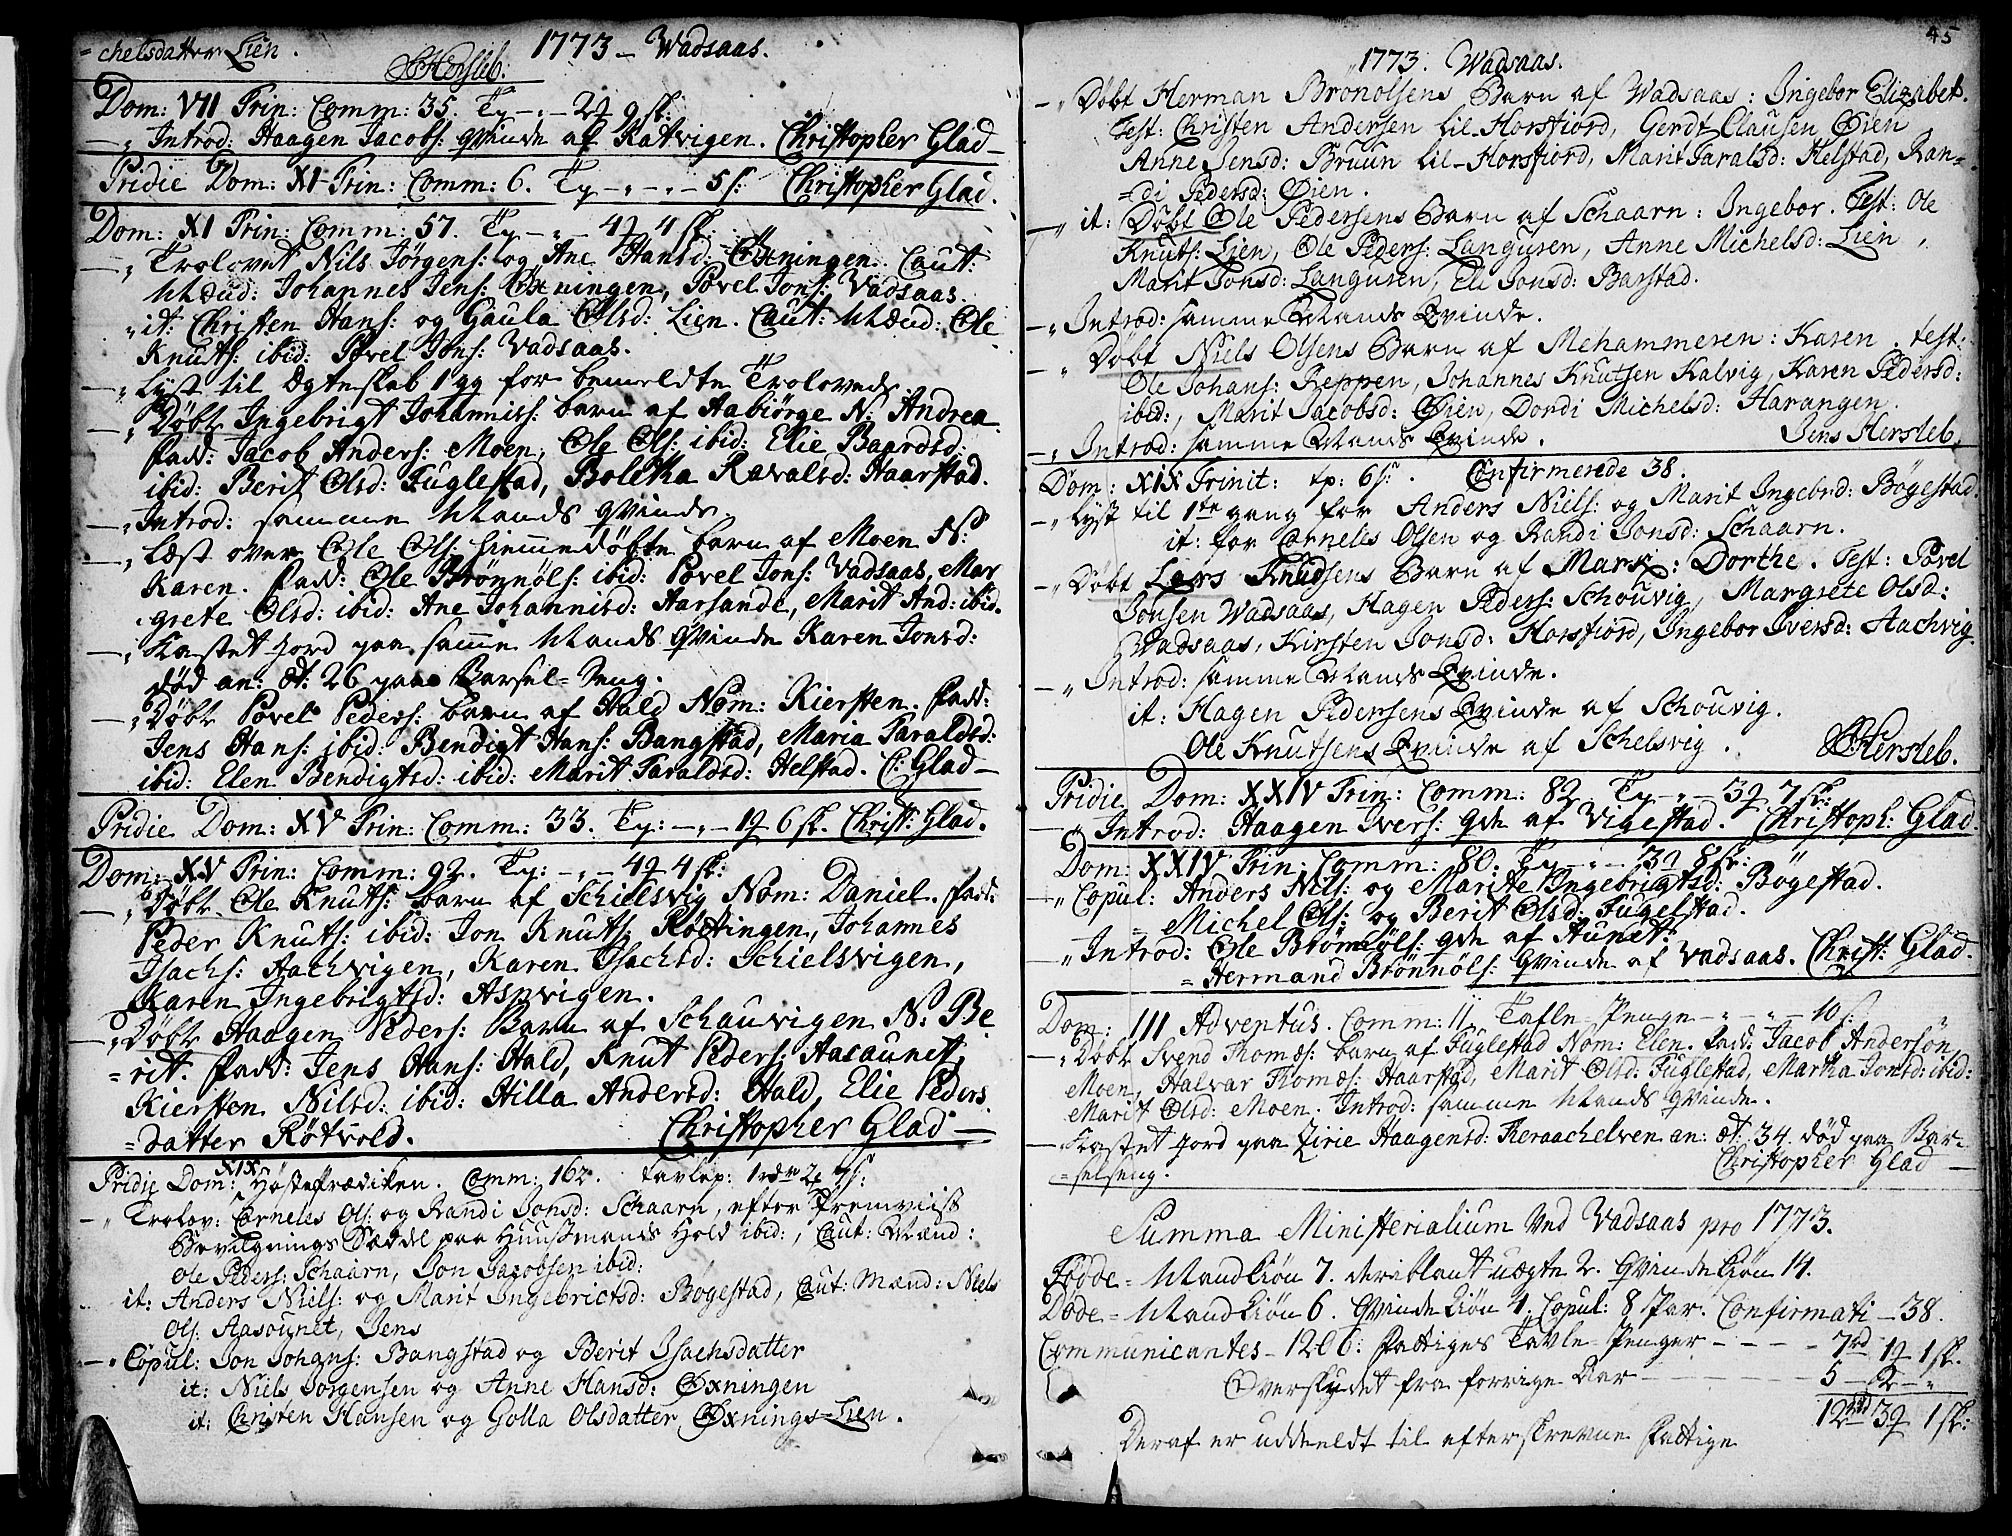 =chelsdatter Lien.
JHersleb.
1773 – Wadsaas.
Dom: VII Trin: Comm: 35. Tp – „ – 2¼ 9 sk:
– „ Introd: Haagen Jacobs: qvinde af Katvigen. Christopher Glad –
Pridie Dom: XI Trin: Comm: 6. Tp – „ – „ – 5 s: Christopher Glad.
Dom: XI Trin: Comm: 57. Tp – „ – 4¼ 4 sk:
– „ Trolovet Nils Jörgens: og Ane Hansd: Öxningen. Caut:
Mænd: Johannes Jens: Öxningen, Povel Jons: Vadsaas.
„ it: Christen Hans: og Gaula Olsd: Lien. Caut: Mænd: Ole
Knuts: ibid: Povel Jons: Vadsaas.
– „ Lyst til Ægteskab 1 gg for bemeldte Trolovede
– „ Döbt Ingebrigt Johannis: barn af Aabiörge N: Andrea
fadd: Jacob Anders: Moen, Ole Ols: ibid: Elie Baardsd:
ibid: Berit Olsd: Fuglestad, Boletha Ravalsd: Haarstad.
– „ Introd: samme Mands qvinde.
– „ Læst over Ole Ols: hiemmedöbte barn af Moen N:
Karen. fadd: Ole Brönnöls: ibid: Povel Jons: Vadsaas, Mar
grete Olsd: ibid: Ane Johannisd: Aarsande, Marit And: ibid.
– „ Kastet Jord paa samme Mands Qvinde Karen Jonsd:
död an: æt: 26 paa Barsel=Seng.
– „ Döbt Povel Peders: barn af Hald Nom: Kiersten. fadd:
Jens Hans: ibid: Bendigt Hans: Bangstad, Maria Taraldsd:
ibid: Elen Bendigtsd: ibid: Marit Taraldsd: Helstad. C: Glad –
Pridie Dom: XV Trin: Comm: 33. Tp: – „ – 1¼ 6 sk. Christ: Glad.
Dom: XV Trin: Comm: 92. Tp: – „ – 4¼ 4 sk:
– „ Döbt Ole Knuts: barn af Schielsvig Nom: Daniel. fadd:
Peder Knuts: ibid: Jon Knuts: Röttingen, Johannes
Isachs: Aachvigen, Karen Isachsd: Schielsvigen,
Karen Ingebrigtsd: Aspvigen.
– „ Döbt Haagen Peders: Barn af Schauvigen N: Be
=rit. fadd: Jens Hans: Hald, Knut Peders: Aasaunet,
Kiersten Nilsd: ibid: Hilla Andersd: Hald, Elie Peders
=datter Rötvold. Christopher Glad –
Pridie Dom: XIX Höstepræidiken. Comm: 162. tavlep: 1 rdr 2¼ 7 s:
– „ Trolov: Corneles Ols: og Randi Jonsd: Schaarn, efter Fremviist
Bevilgnings Sæddel paa Huusmands Hold ibid:, Caut: Mænd:
Ole Peders: Schaarn, Jon Jacobsen ibid:
it: Anders Niels: og Marit Ingebrictsd: Bögestad, Caut: Mænd: Niels
Ols: Aasounet, Jens
– „ Copul: Jon Johans: Bangstad og Berit Isachsdatter
it: Niels Jörgensen og Anne Hansd: Öxningen
it: Christen Hansen og Golla Olsdatter Öxnings=Lien.
45
1773. Wadsaas.
– „ Döbt Herman Bronolsens Barn af Wadsaas: Ingebor Elizabet.
Test: Christen Andersen lil-Horsfiord, Gerdt Clausen Öien
Anne Jensd: Bruun lil-Horsfiord, Marit Taralsd: Helstad, Ran=
=di Pedersd: Öien.
– „ it: Döbt Ole Pedersens Barn af Schaarn: Ingebor. Test: Ole
Knuts: Lien, Ole Peders: Languren, Anne Michelsd: Lien,
Marit Jonsd: Languren, Eli Jonsd: Barstad.
– „ Introd: samme Mands Qvinde.
– „ Döbt Niels Olsens Barn af Mehammeren: Karen. test:
Ole Johans: Reppen, Johannes Knutsen Kalvig, Karen Pedersd:
ibid:, Marit Jacobsd: Öien, Dordi Michelsd: Harangen.
– „ Introd: samme Mands Qvinde. Jens Hersleb.
Dom: XIX Trinit: tp: 6 s:. Confirmerede 38.
– „ Lyst til 1te gang for Anders Niels: og Marit Ingebrd: Bögestad.
it: for Corneles Olsen og Randi Jonsd: Schaarn.
– „ Döbt Lars Knudsens Barn af Marx: Dorthe. Test: Povel
Jonsen Wadsaas, Hagen Peders: Schouvig, Margrete Olsd:
Wadsaas, Kirsten Jonsd: Horsfiord, Ingebor Iversd: Aachvig.
– „ Introd: samme Mands Qvinde.
it: Hagen Pedersens Qvinde af Schouvig.
Ole Knutsens Qvinde af Schelsvig. JHersleb.
Pridie Dom: XXIV Trin: Comm: 82. Tp – „ – 3¼ 7 sk:
– „ Introd: Haagen Ivers: qde af Vigestad. Christoph: Glad.
Dom: XXIV Trin: Comm: 80. Tp – „ – 3¼ 8 sk:
– „ Copul: Anders Nils: og Marite Ingebrigtsd: Bögestad.
= Michel Ols: og Berit Olsd: Fugelstad.
– „ Introd: Ole Brönnöls: qde af Aunet:
= Hermand Brönnöls: Qvinde af Vadsaas. Christ: Glad.
Dom: III Adventus. Comm: 11 Tafle-Penge – „ – „ – 10 s
– „ Döbt Svend Thomæs: barn af Fuglestad Nom: Elen. fadd: Jacob Andersön
Moen, Halvar Thomæs: Haarstad, Marit Olsd: Fuglestad, Martha Jonsd: ibid:
Marit Olsd: Moen. Introd: samme Mands qvinde.
– Kastet jord paa Zirie Haagensd: Keraachelven an: æt: 34. död paa Bar=
=selseng. Christopher Glad –
Summa Ministerialium Ved Vadsaas pro 1773.
Födde = Mandkiön 7. deriblant uægte 2. Qvindekiön 14.
Döde = Mandkiön 6. Qvindekiön 4. Copul: 8 Par. Confirmati – 38.
Communicantes – 1206: Fattiges Tavle Penger – – – – 7 rd 1¼ 1 sk.
Overskudet fra forrige Aar – – – – 5 – 2 – „
12 rd 3¼ 1 sk:
Deraf er uddeeldt til efterskrevne Fattige